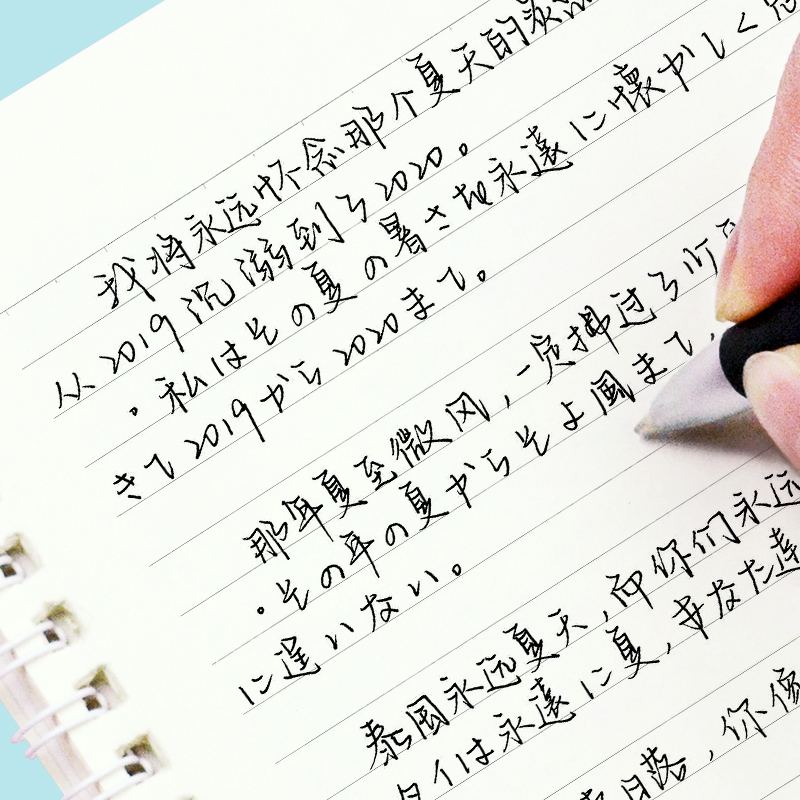 我将永远怀念那个夏天的炎
从2019沉溺到了2020。
・私はその夏の暑さを永遠に懐かしく
きて2019から2020まで。
那年夏至微风，一定拂过了
・その年の夏からそよ風まで，
に違いない。
泰国永远夏天，而你们永远
タイは永遠に夏，あなた達
日落，你像